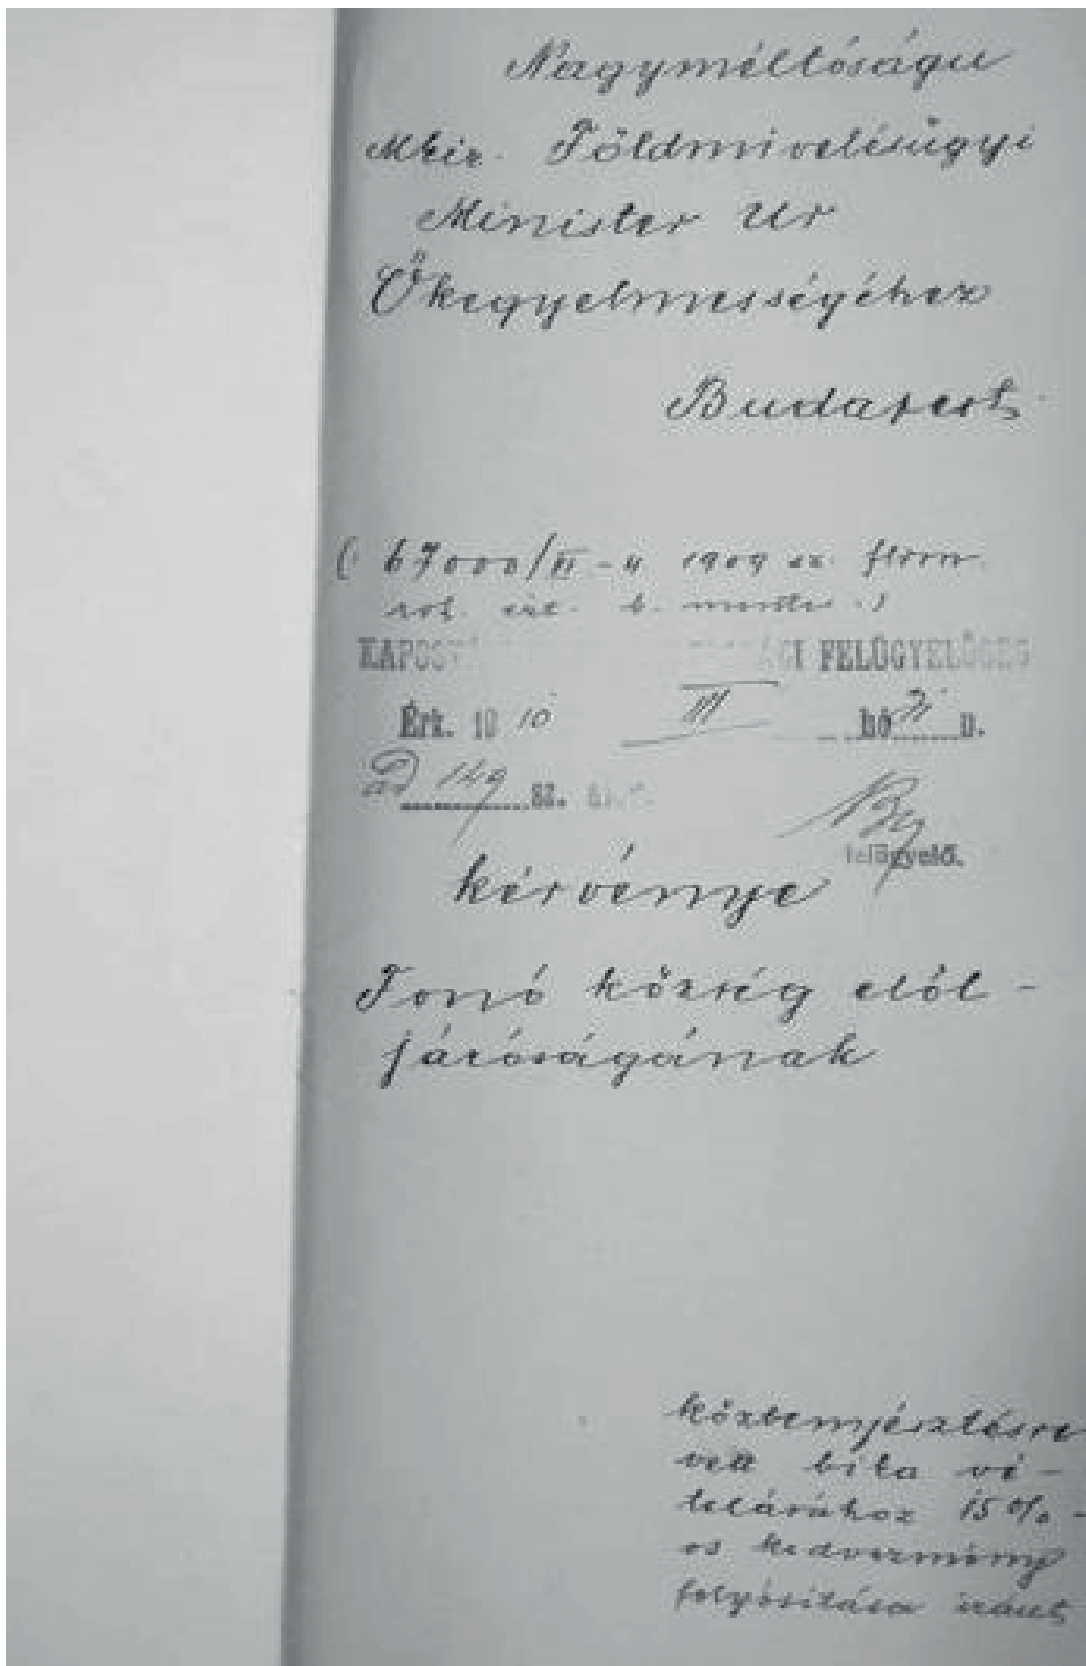 Nagyméltóságu
Mkir. Földmivelésügyi
Minister Ur
Őkegyelmességéhez
Budapest
67000/ 1909 sz.
KAPOSV FELÜGYELŐSÉG
Érk. 1910 III hó n.
ad 149 sz.
felügyelő.
kérvénye
Tonó község elöl-
járóságának
köztenyésztésre
vett bika vé-
telárához 15%-
os kedvezmény
folyósitása iránt